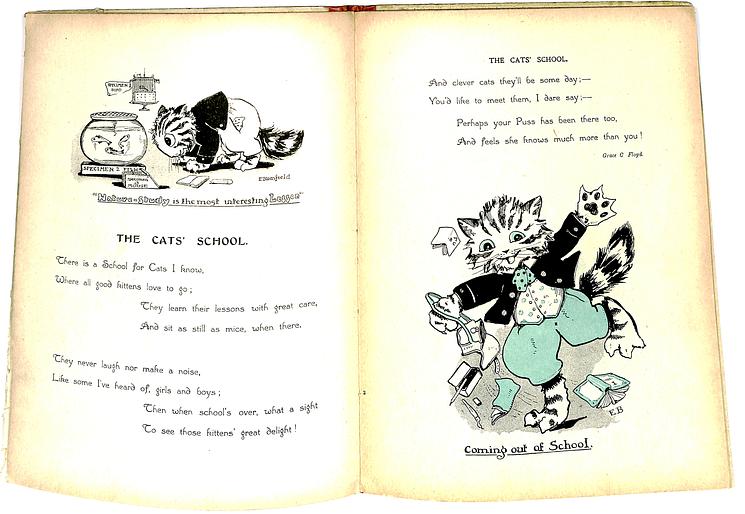 SPECIMEN 2 FISH
E. Banfield
"Nature-Study is the most interesting Lesson"
THE CATS' SCHOOL.
There is a School for Cats I know,
Where all good kittens love to go;
They learn their lessons with great care,
And sit as still as mice, when there.
They never laugh nor make a noise,
Like some I've heard of, girls and boys;
Then when school's over, what a sight
To see those kittens' great delight!
THE CATS' SCHOOL.
And clever cats they'll be some day;—
You'd like to meet them, I dare say;—
Perhaps your Puss has been there too,
And feels she knows much more than you!
Grace C Floyd.
E.B
Coming out of School.